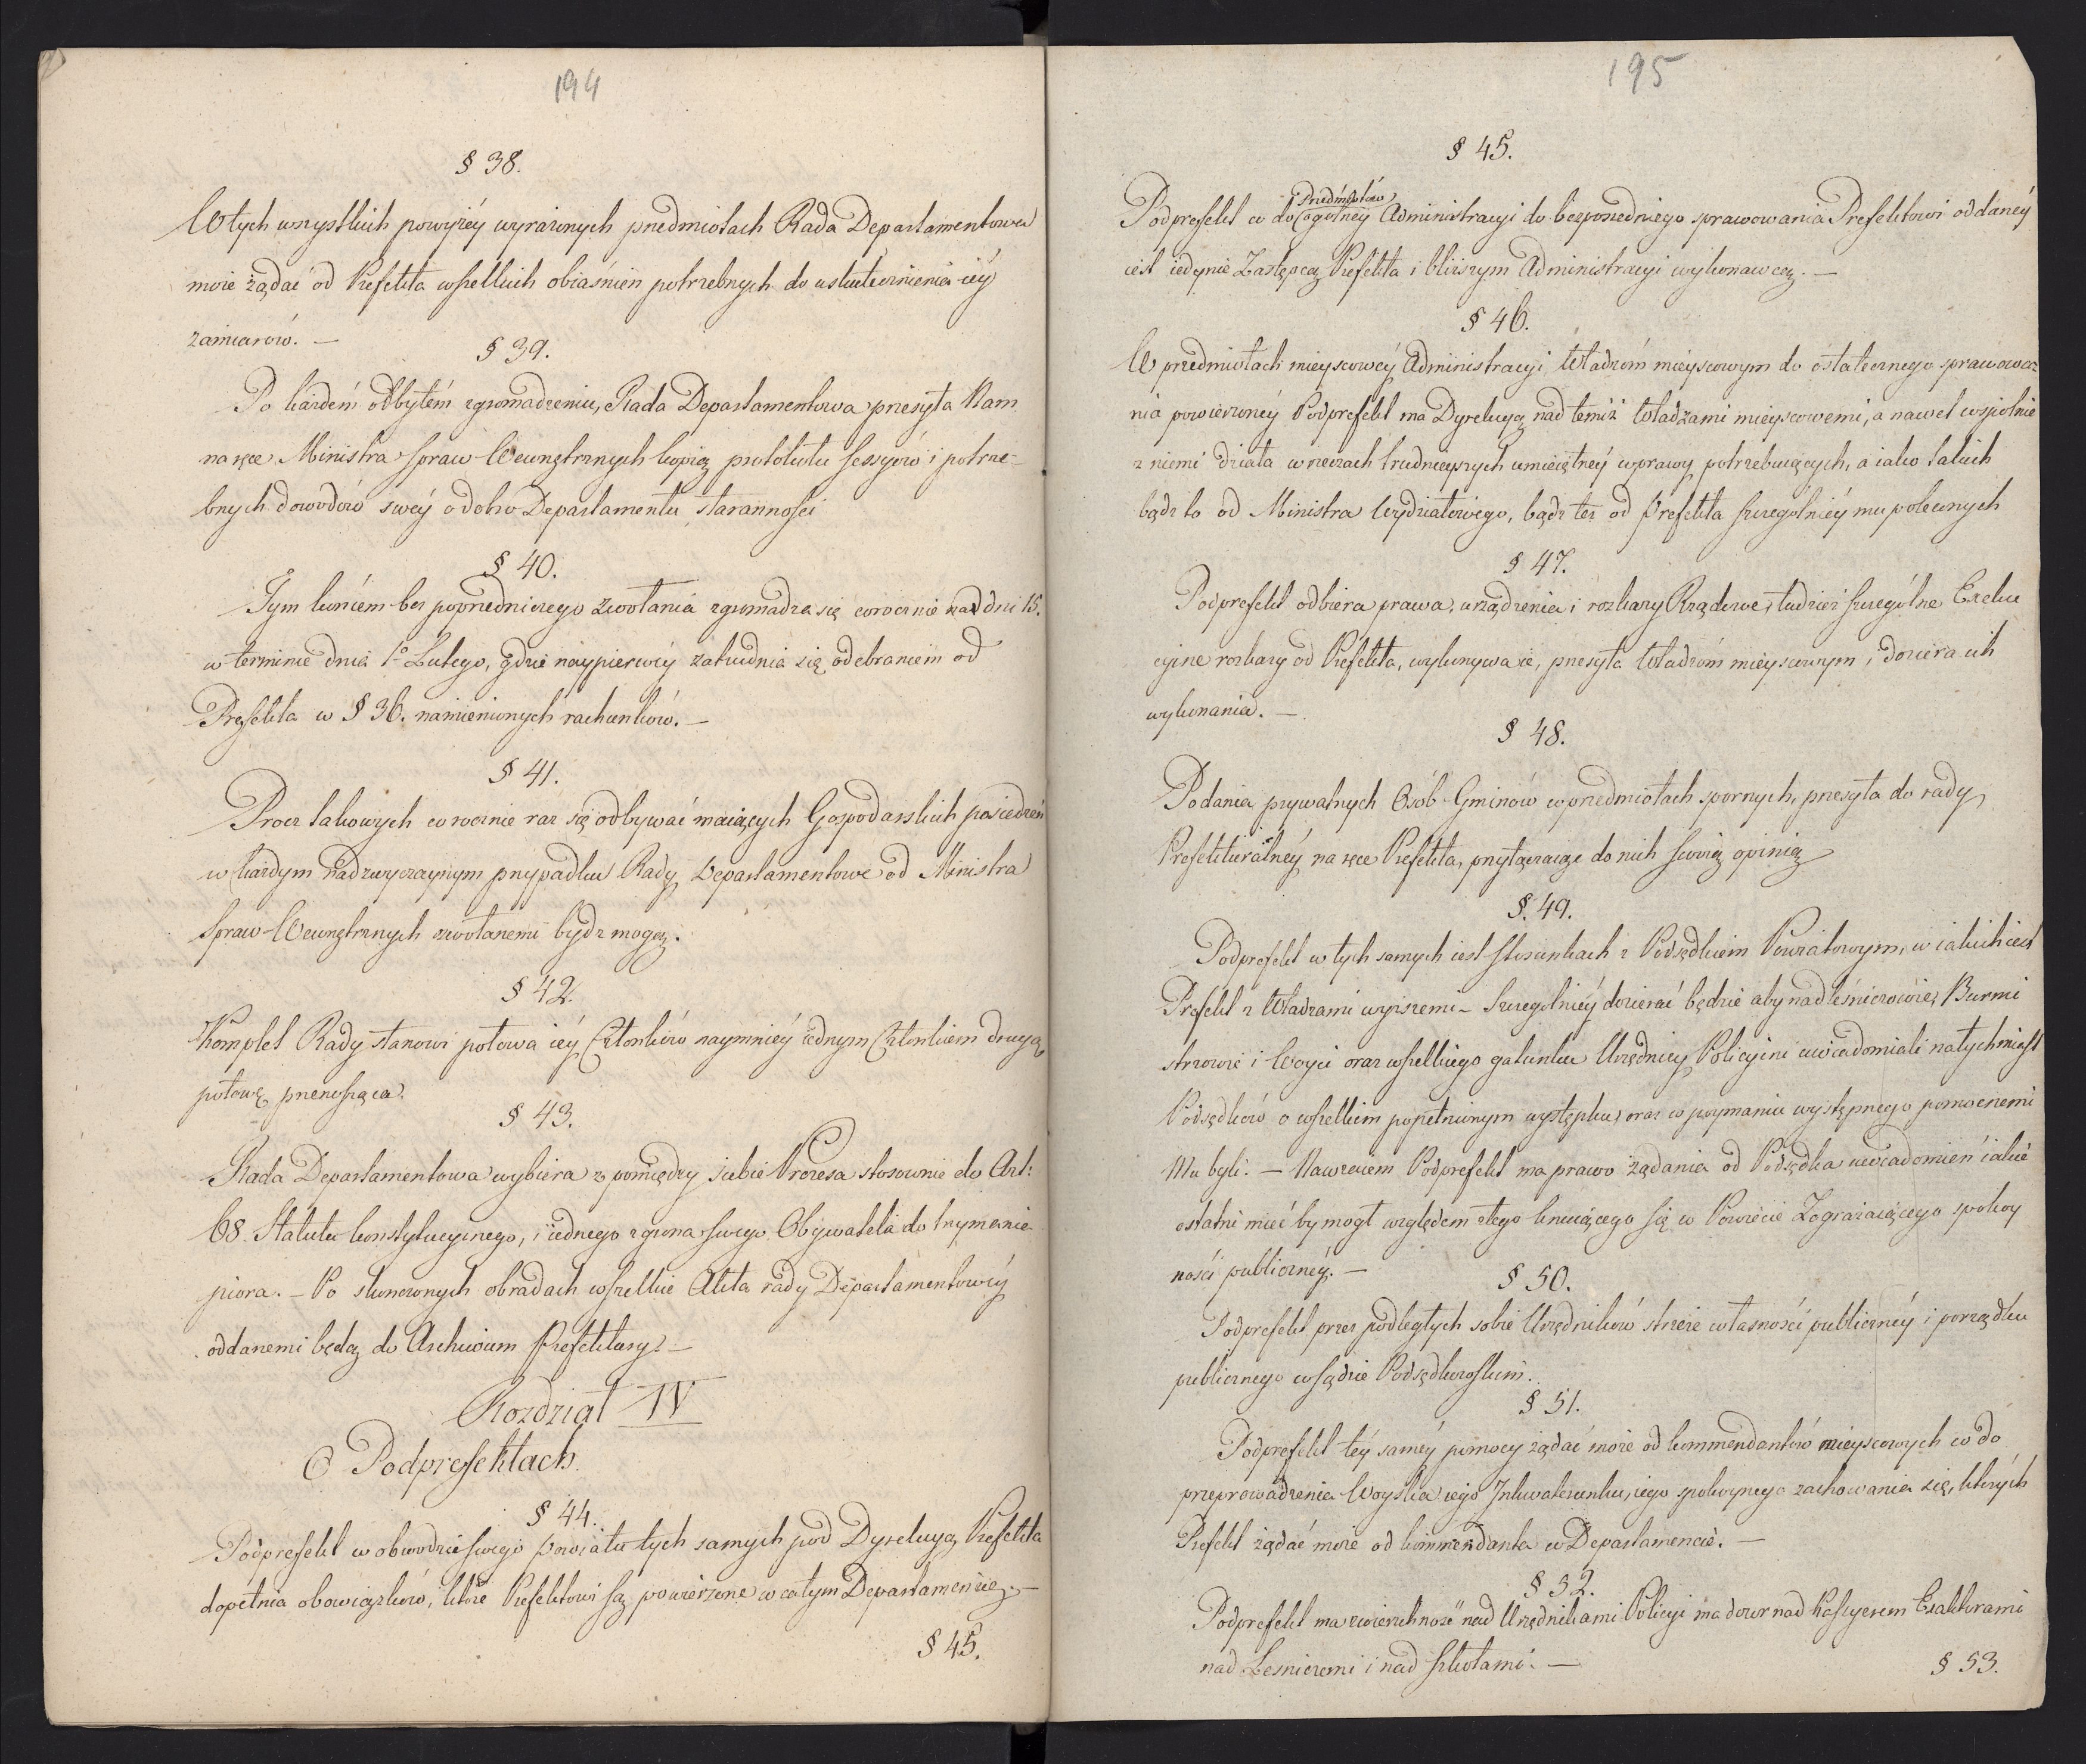 194
§ 38.
W tych wszystkich powyżéy wyrażonych przedmiotach Rada Departamentowa
może żądać od Prefekta wszelkich obiaśnień potrzebnych do uskutecznienia iéy
zamiarów. —
§ 39.
Po każdém odbytém zgromadzeniu, Rada Departamentowa przesyła Nam
na ręce Ministra Spraw Wewnętrznych kopią protokułu sessyów i potrze-
bnych dowodów swéy o dobro Departamentu staranności
§ 40.
Tym końcem bez poprzedniczego zwołania zgromadza się corocznie na dni 15.
w terminie dnia 1o Lutego, gdzie naypierwéy zatrudnia się odebraniem od
Prefekta w § 36. namienionych rachunków. —
§ 41.
Procz takowych corocznie raz się odbywać maiących Gospodarskich posiedzeń
w każdym nadzwyczaynym przypadku Rady Departamentowe od Ministra
Spraw Wewnętrznych zwołanemi bydz mogą.
§ 42.
Komplet Rady stanowi połowa iéy Członków naymniéy iednym Członkiem drugą
połowę przenosząca.
§ 43.
Rada Departamentowa wybiera z pomiędzy siebie Prezesa stosownie do Art:
68. Statutu konstytucyinego, i iednego z grona swego Obywatela do trzymania
piora. — Po skonczonych obradach wszelkie Akta rady Departamentowéy
oddanemi będą do Archiwum Prefektury. —
Rozdział IV
O Podprefektach.
§ 44.
Podprefekt w obwodzie swego Powiatu tych samych pod Dyrekcyą Prefekta
dopełnia obowiązków, które Prefektowi są powierzone w całym Departamencie. —
§ 45.
195
§ 45.
Przedmiotów
Podprefekt co do ogolney Administracyi do bezposredniego sprawowania Prefektowi oddanéy
iest iedynie Zastępcą Prefekta i bliższym Administracyi wykonawcą. —
§ 46.
W przedmiotach mieyscowéy Administracyi Władzóm mieyscowym do ostatecznego sprawowa
nia powierzonéy Podprefekt ma Dyrekcyą nad temiż Władzami mieyscowemi, a nawet wspolnie
z niemi działa w rzeczach trudnieyszych umieiętnéy wprawy potrzebuiących, a iako takich
bądz to od Ministra Wydziałowego, bądz też od Prefekta szczególniéy mu poleconych
§ 47.
Podprefekt odbiera prawa, urządzenia i rozkazy Rządowe, tudzież szczególne Exeku
cyine rozkazy od Prefekta, wykonywa ie, przesyła Władzóm mieyscowym, i dozíera ich
wykonania. —
§ 48.
Podania prywatnych Osób Gminów w przedmiotach spornych, przesyła do rady
Prefekturalnéy na ręce Prefekta, przyłączaiąc do nich swoią opinią
§. 49.
Podprefekt w tych samych iest stosunkach z Podsędkiem Powiatowym, w iakich iest
Prefekt z Władzami wyższemi — Szczegolniéy dozierać będzie aby nadleśniczowie, Burmi
strzowie i Woyci oraz wszelkiego gatunku Urzędnicy Policyini uwiadomiali natychmiast
Podsędków o wszelkim popełnionym występku, oraz w poymaniu występnego pomocnemi
Mu byli. — Nawzaiem Podprefekt ma prawo żądania od Podsędka uwiadomień iakie
ostatni mieć by mogł względem złego knuiącego się w Powiecie Zagrażaiącego spokoy
ności publicznéy. —
§ 50.
Podprefekt przez podległych sobie Urzędników strzeże własności publicznéy i porządku
publicznego w sądzie Podsędkowskim.
§ 51.
Podprefekt téy saméy pomocy żądać może od kommendantów mieyscowych co do
przeprowadzenia Woyska iego Inkwaterunku, iego spokoynego zachowania się, których
Prefekt żądać może od kommendanta w Departamencie. —
§ 52.
Podprefekt ma zwierzchność nad Urzędnikami Policyi ma dozor nad Kassyerem Exaktorami
nad Lesniczemi i nad szkołami. —
§ 53.